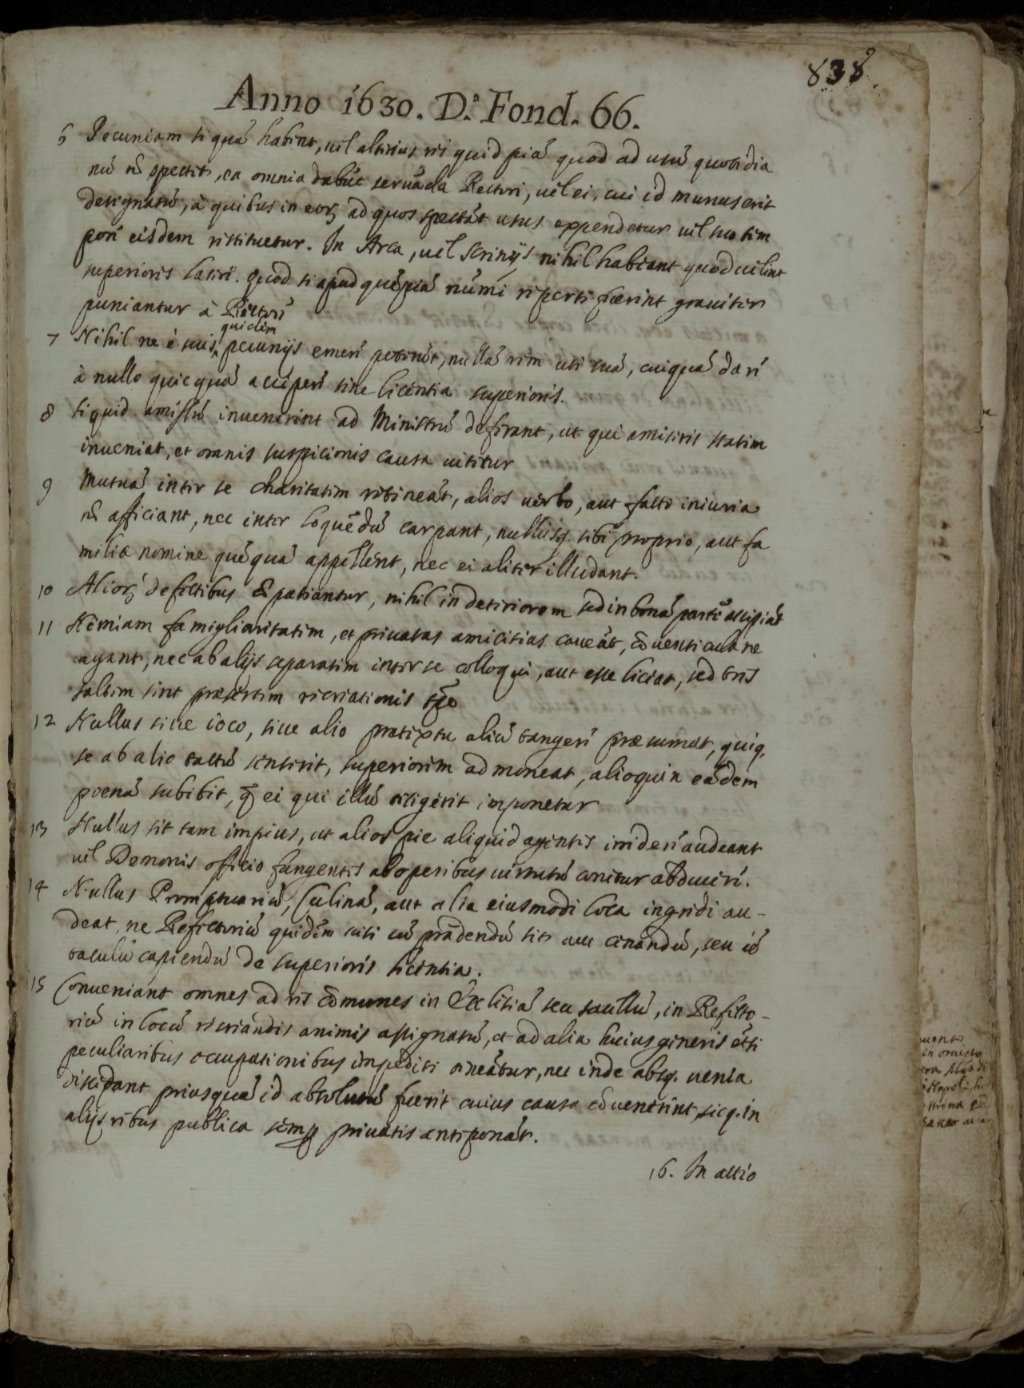 838
Anno 1630. D.ᵃ Fond. 66.
6 Pecuniam si quã habent, vel alterius rei quidpiã quod ad usũ quotidia
nũ nõ spectet, ea omnia dabũt servãda Rectori, vel ei, cui id munus erit
designatũ, à quibus in eorꝫ ad quos spectãt usus expendetur vel suo tem
pore eisdem restituetur. In Arca, vel scrinijs nihil habeant quod velint
superiores latere. quod si apud quẽpiã nũmi reperti fuerint graviter
puniantur à Rectore
7 Nihil ne è suis quidem pecunijs emere poterũt, nullã rem uti suã, cuiquã dare
à nullo quicquã accipere sine licentia superioris.
8 Si quid amissũ invenerint ad Ministrũ deferant, ut qui amiserit statim
inveniat, et omnis suspicionis causa vitetur
9 Mutuã inter se charitatem retineãt, alios verbo, aut facto iniuria
nõ afficiant, nec inter loquẽdũ carpant, nullusq. sibi proprio, aut fa
miliæ nomine quẽquã appellent, nec ei aliter illudant.
10 Aliorꝫ defectibus cõpatiantur, nihil in deteriorem sed in bonã partẽ accipiãt
11 Nimiam famigliaritatem, et privatas amicitias caveãt, cõventicula ne
agant, nec ab alijs separatim inter se colloqui, aut esse liceat, sed tres
saltem sint præsertim recreationis tp̃e
12 Nullus sive ioco, sive alio pretextu aliũ tangere præsumat, quiq.
se ab alio tactũ senserit, superiorem admoneat, alioquin eãdem
poenã subibit, q̃ ei qui illũ tetigerit imponetur
13 Nullus sit tam impius, ut alios pie aliquid agentes irridere audeant
vel Demonis officio fungentes ab operibus virtutũ conetur abducere.
14 Nullus Promptuariũ, Culinã, aut alia eiusmodi loca ingredi au-
deat, ne Refectoriũ quidem nisi cũ prãdendũ sit, aut cænandũ, seu iẽ
taculũ capiendũ de superioris licentia.
15 Conveniant omnes ad res cõmunes in Ecclesiã seu sacellũ, in Refecto-
riũ in locũ recreandis animis assignatũ, et ad alia huius generis etsi
peculiaribus occupationibus impediti teneãtur, nec inde absq. venia
discedant priusquã id absolutũ fuerit cuius causa cõvenerint, sicq. in
alijs rebus publica semp privatis anteponãt.
16. In actio